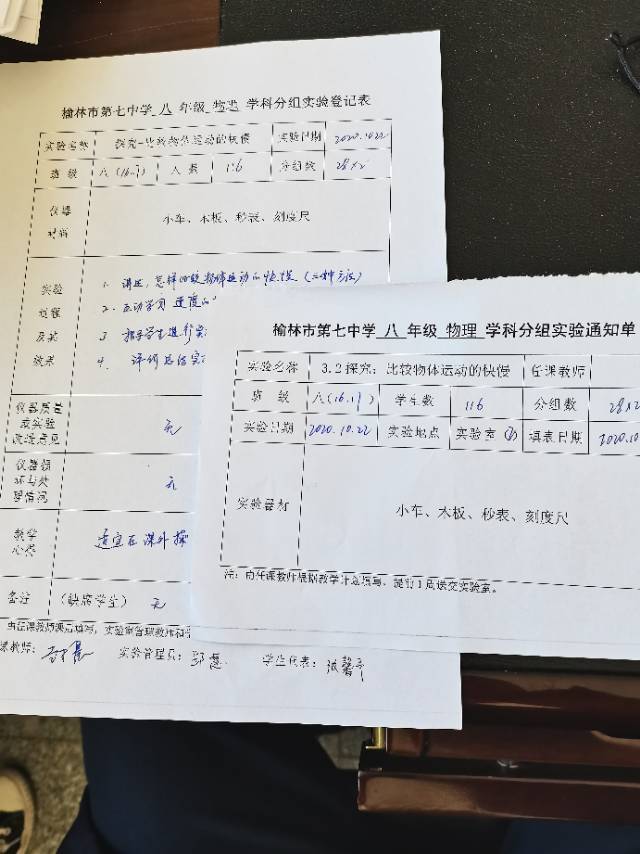 榆林市第七中学 八 年级 物理 学科分组实验登记表
实验名称 探究-比较物体运动的快慢 实验日期 2020.10.22
班级 八(16.17) 人数 116 分组数 28×2
仪器
材料
小车、木板、秒表、刻度尺
实验
过程
及其
效果
1. 讲述,怎样比较物体运动的快慢
2. 互动学习 速度
3. 指导学生进行实
4. 评价总结实
仪器质量
或实验
改进意见
无
仪器损
坏与处
理情况
无
教学
心得
适宜在课外探
备注 (缺席学生) 无
由任课教师课后填写,实验室管理教师和学
课教师: 实验管理员: 学生代表: 张馨予
榆林市第七中学 八 年级 物理 学科分组实验通知单
实验名称 3.2探究:比较物体运动的快慢 任课教师
班级 八(16.17) 学生数 116 分组数 28×2
实验日期 2020.10.22 实验地点 实验室(2) 填表日期 2020.10
实验器材 小车、木板、秒表、刻度尺
注:由任课教师根据教学计划填写,提前1周送交实验室。